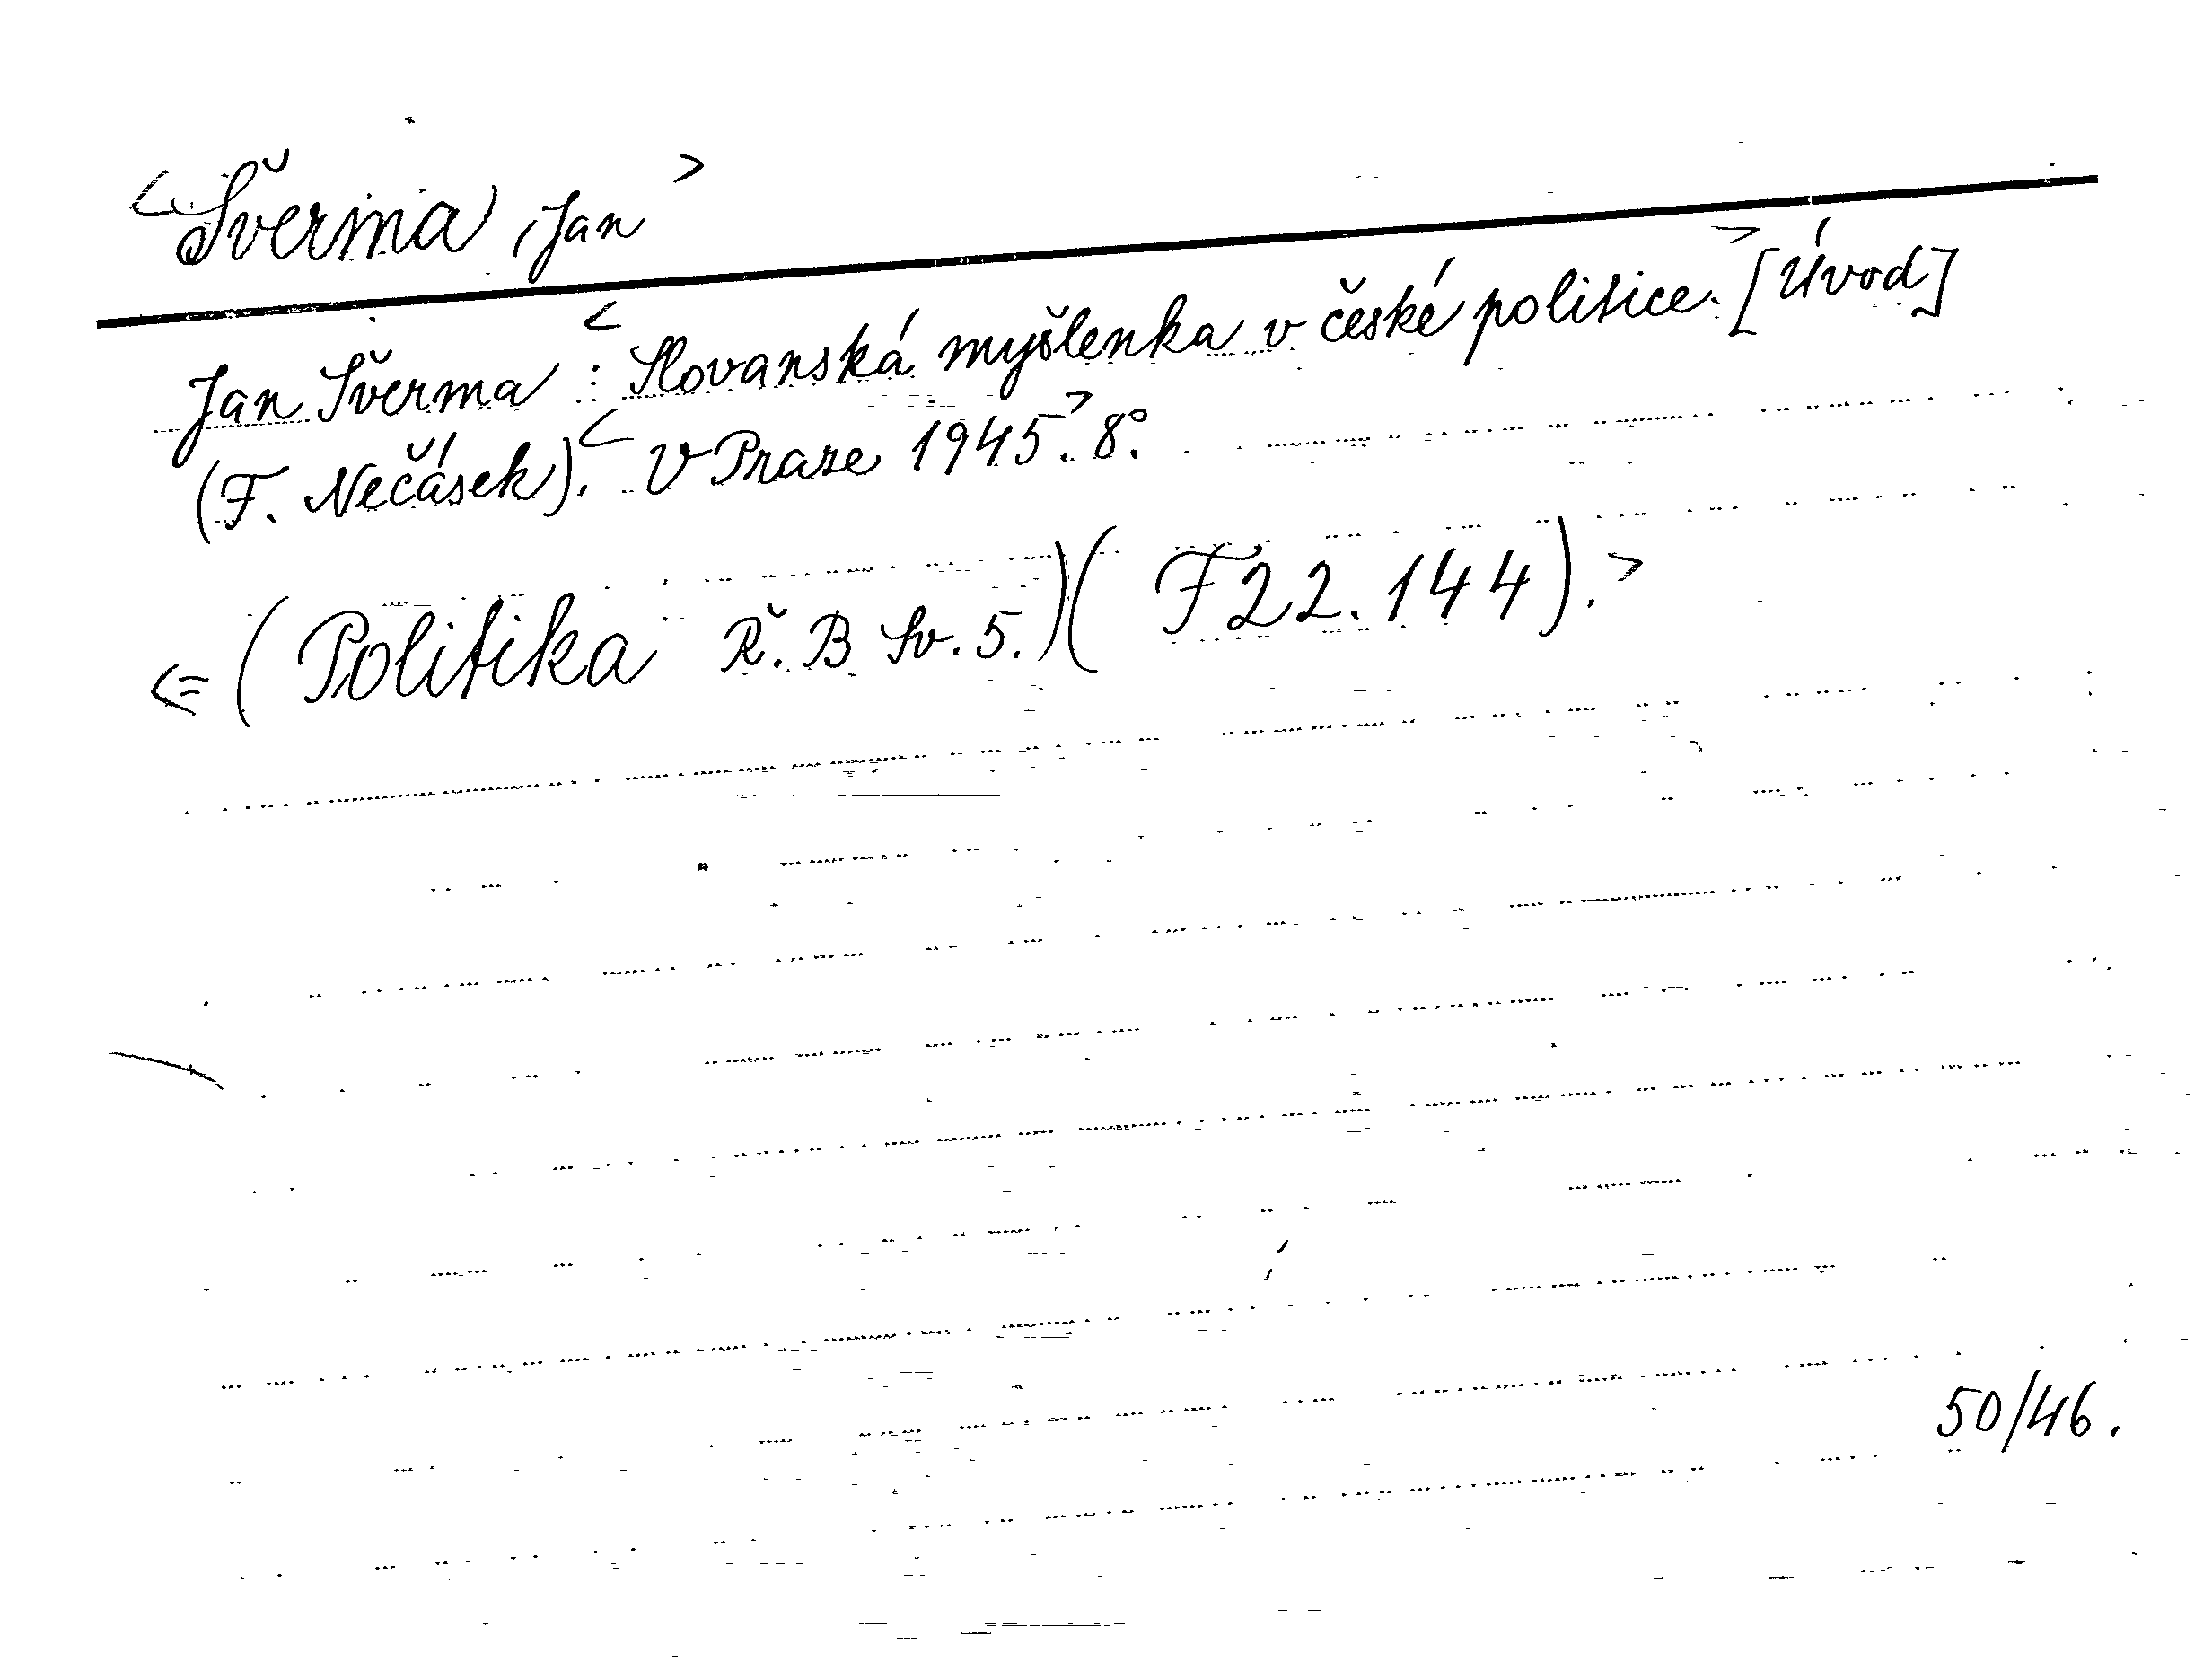 <Šverma, Jan>
Jan Šverma: <Slovanská myšlenka v české politice.> [Úvod]
(F. Nečásek). <V Praze 1945.> 8°.
<=(Politika Ř. B Sv. 5.)(F 22.144).>
50/46.